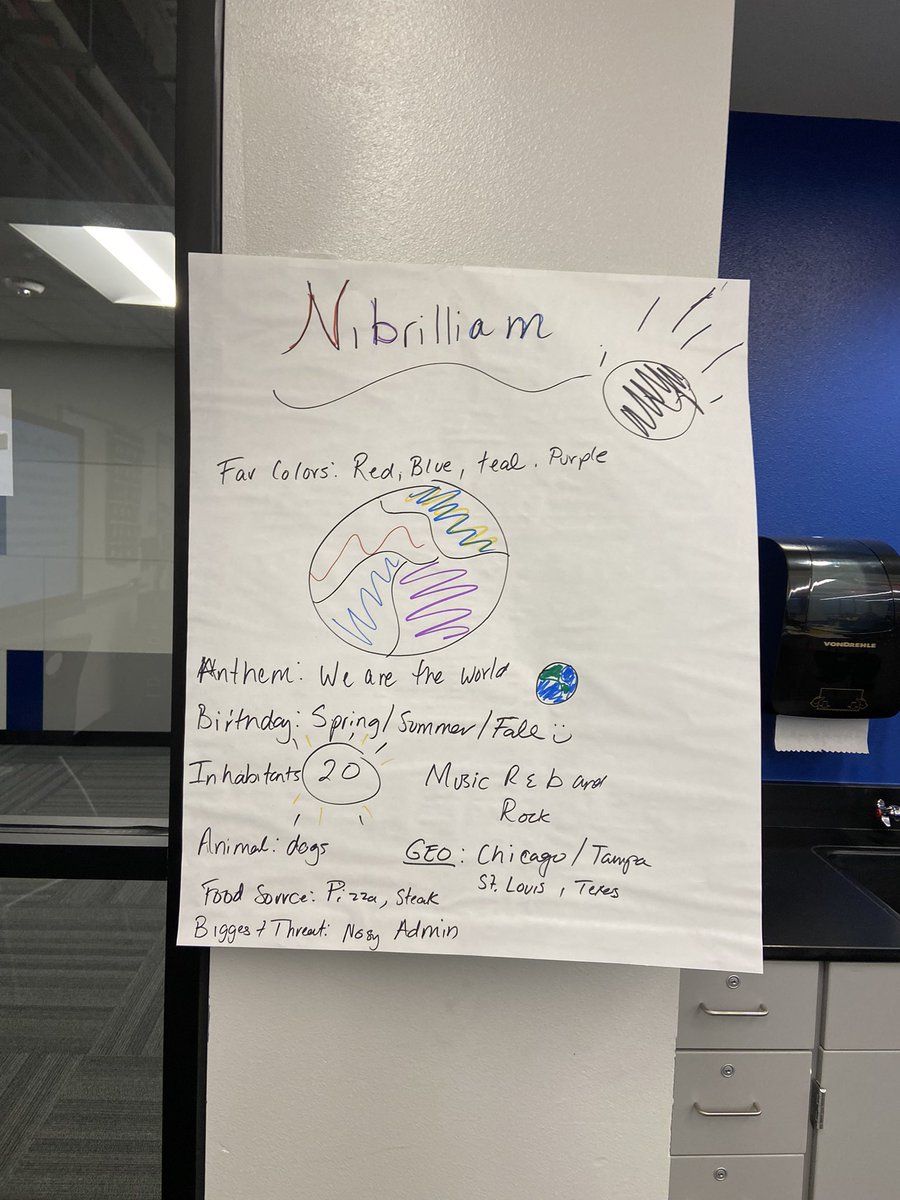 Nibrilliam
Fav Colors: Red, Blue, teal. Purple
Anthem: We are the world
Birthday: Spring/Summer/Fall
Inhabitants 20
Music R & b and
Rock
Animal: dogs
GEO: Chicago/Tampa
St. Louis, Texes
Food Source: Pizza, Steak
Biggest Threat: Nosy Admin
VONDREHLE